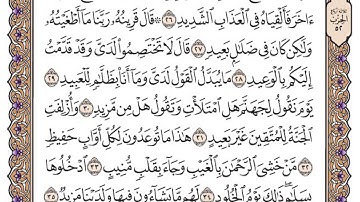 ءَاخَرَ فَأَلْقِيَاهُ فِي ٱلْعَذَابِ ٱلشَّدِيدِ ٢٦ ۞ قَالَ قَرِينُهُۥ رَبَّنَا مَآ أَطْغَيْتُهُۥ
وَلَٰكِن كَانَ فِي ضَلَٰلِۭ بَعِيدٖ ٢٧ قَالَ لَا تَخْتَصِمُواْ لَدَيَّ وَقَدْ قَدَّمْتُ
إِلَيْكُم بِٱلْوَعِيدِ ٢٨ مَا يُبَدَّلُ ٱلْقَوْلُ لَدَيَّ وَمَآ أَنَا۠ بِظَلَّٰمٖ لِّلْعَبِيدِ ٢٩
يَوْمَ نَقُولُ لِجَهَنَّمَ هَلِ ٱمْتَلَأْتِ وَتَقُولُ هَلْ مِن مَّزِيدٖ ٣٠ وَأُزْلِفَتِ
ٱلْجَنَّةُ لِلْمُتَّقِينَ غَيْرَ بَعِيدٍ ٣١ هَٰذَا مَا تُوعَدُونَ لِكُلِّ أَوَّابٍ حَفِيظٖ
٣٢ مَّنْ خَشِيَ ٱلرَّحْمَٰنَ بِٱلْغَيْبِ وَجَآءَ بِقَلْبٖ مُّنِيبٍ ٣٣ ٱدْخُلُوهَا
بِسَلَٰمٖۖ ذَٰلِكَ يَوْمُ ٱلْخُلُودِ ٣٤ لَهُم مَّا يَشَآءُونَ فِيهَا وَلَدَيْنَا مَزِيدٞ ٣٥
الحزب
٥٢